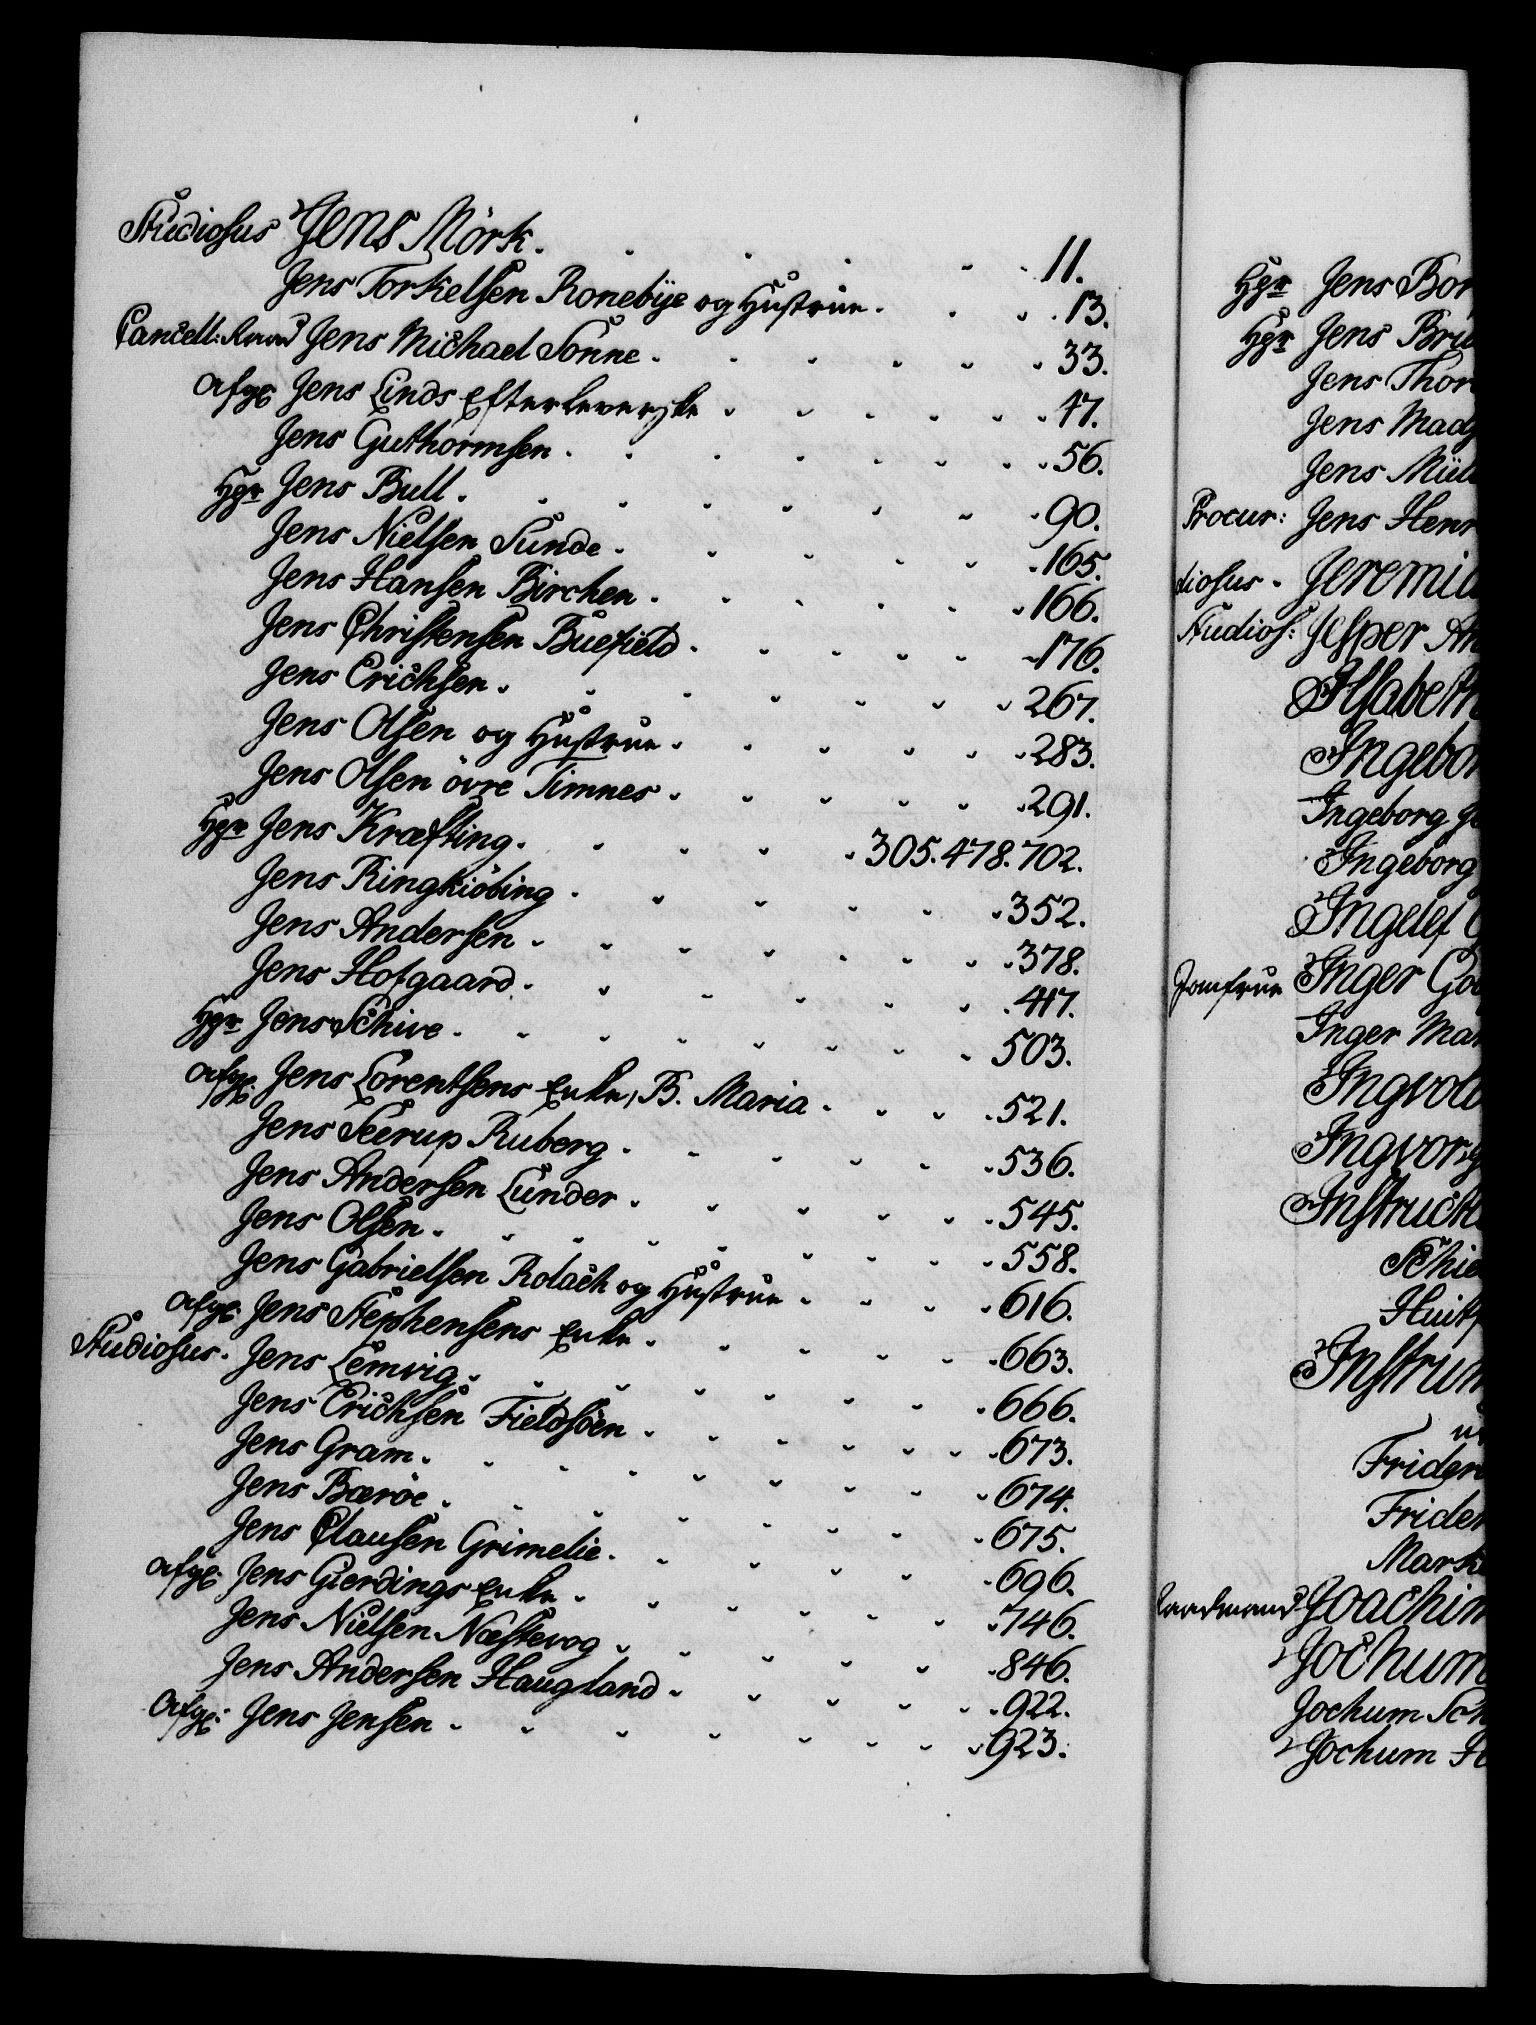 Studiosus Jens Mörk. 11.
Jens Torkelsen Ronebÿe og Hustrue. 13.
Cancell: Raad Jens Michael Sonne. 33.
Afg: Jens Linds Efterleverske 47.
Jens Guthormsen. 56.
Hgr Jens Bull. 90.
Jens Nielsen Sunde. 165.
Jens Hansen Birchen. 166.
Jens Christensen Buefield. 176.
Jens Erichsen. 267.
Jens Olsen og Hustrue. 283.
Jens Olsen övre Timnes. 291.
Hgr Jens Kræfting. 305. 478. 702.
Jens Ringkiöbing. 352.
Jens Andersen. 378.
Jens Hofgaard. 417.
Hgr Jens Schive. 503.
Afg: Jens Lorentsens Enke, B. Maria. 521.
Jens Seerup Ruberg. 536.
Jens Andersen Lunder. 545.
Jens Olsen. 558.
Jens Gabrielsen Rolack og Hustrue 616.
Afg: Jens Stephensens Enke. 663.
Studiosus. Jens Lemvig. 666.
Jens Erichsen Fieldsöen. 673.
Jens Gram. 674.
Jens Bæröe. 675.
Jens Clausen Grimelie. 696.
Afg: Jens Gierdings Enke. 746.
Jens Nielsen Næstevog. 846.
Jens Andersen Haugland. 922.
Afg: Jens Jensen. 923.
Hgr Jens Bor
Hgr Jens Bru
Jens Thor
Jens Mad
Jens Mül
Procur: Jens Henr
diosus. Jeremia
Studios: Jesper An
Ilsabeth
Ingebor
Ingeborg
Ingeborg
Ingelef
Jomfrue Inger Go
Inger Mar
Ingvold
Ingvor
Instruct
Schie
Huitf
Instrum
Frider
Frider
Mark
Raadmand Joachim
Jochum
Jochum Sch
Jochum H